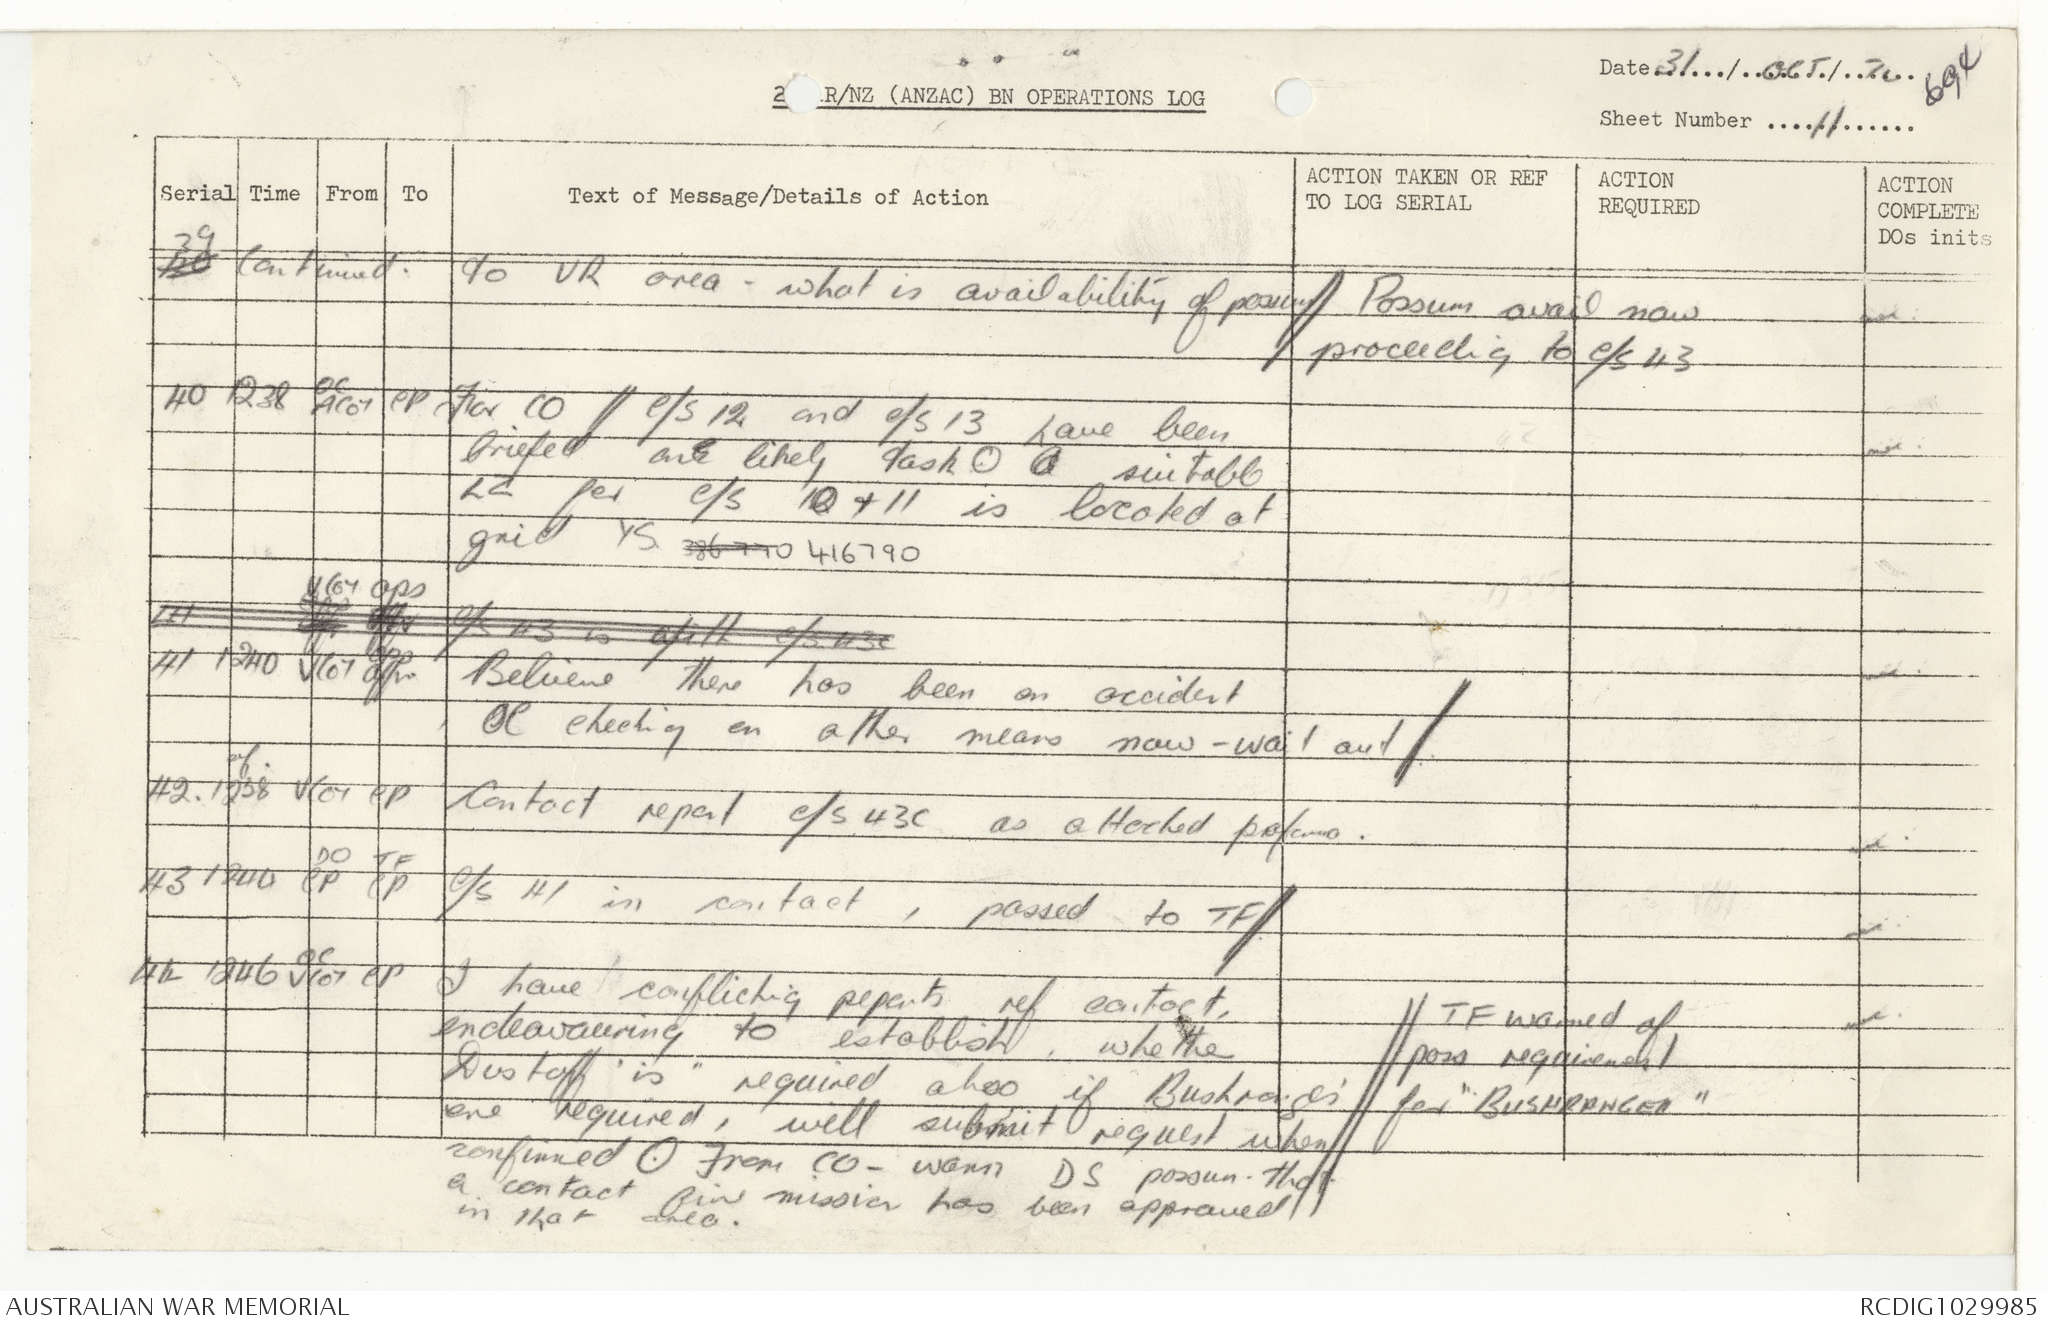 Date 31 / OCT / 70
694
2 RAR/NZ (ANZAC) BN OPERATIONS LOG
Sheet Number 11
Serial Time From To Text of Message/Details of Action ACTION TAKEN OR REF TO LOG SERIAL ACTION REQUIRED ACTION COMPLETE DOs inits
39 Continued. to VR area - what is availability of possum // Possum avail now
proceeding to c/s 43
40 1238 OC ACoy CP For CO // c/s 12 and c/s 13 have been
briefed on likely task. A suitable
LZ for c/s 10 + 11 is located at
grid YS 386770 416790
VCoy ops
41 c/s 43 is with c/s 43C
41 1240 VCoy ops Believe there has been an accident
, OC checking on other means now - wait out //
42. 1238 VCoy CP Contact report c/s 43C as attached proforma.
43 1240 DO CP TF CP c/s 41 in contact, passed to TF //
44 1246 OC VCoy CP I have conflicting reports ref contact, // TF warned of
endeavouring to establish, whether poss requirement
Dustoff "is" required also if Bushranger's for "BUSHRANGER"
are required, well submit request when
confirmed. From CO - warn DS possum. that
a contact fire mission has been approved //
in that area.
AUSTRALIAN WAR MEMORIAL
RCDIG1029985